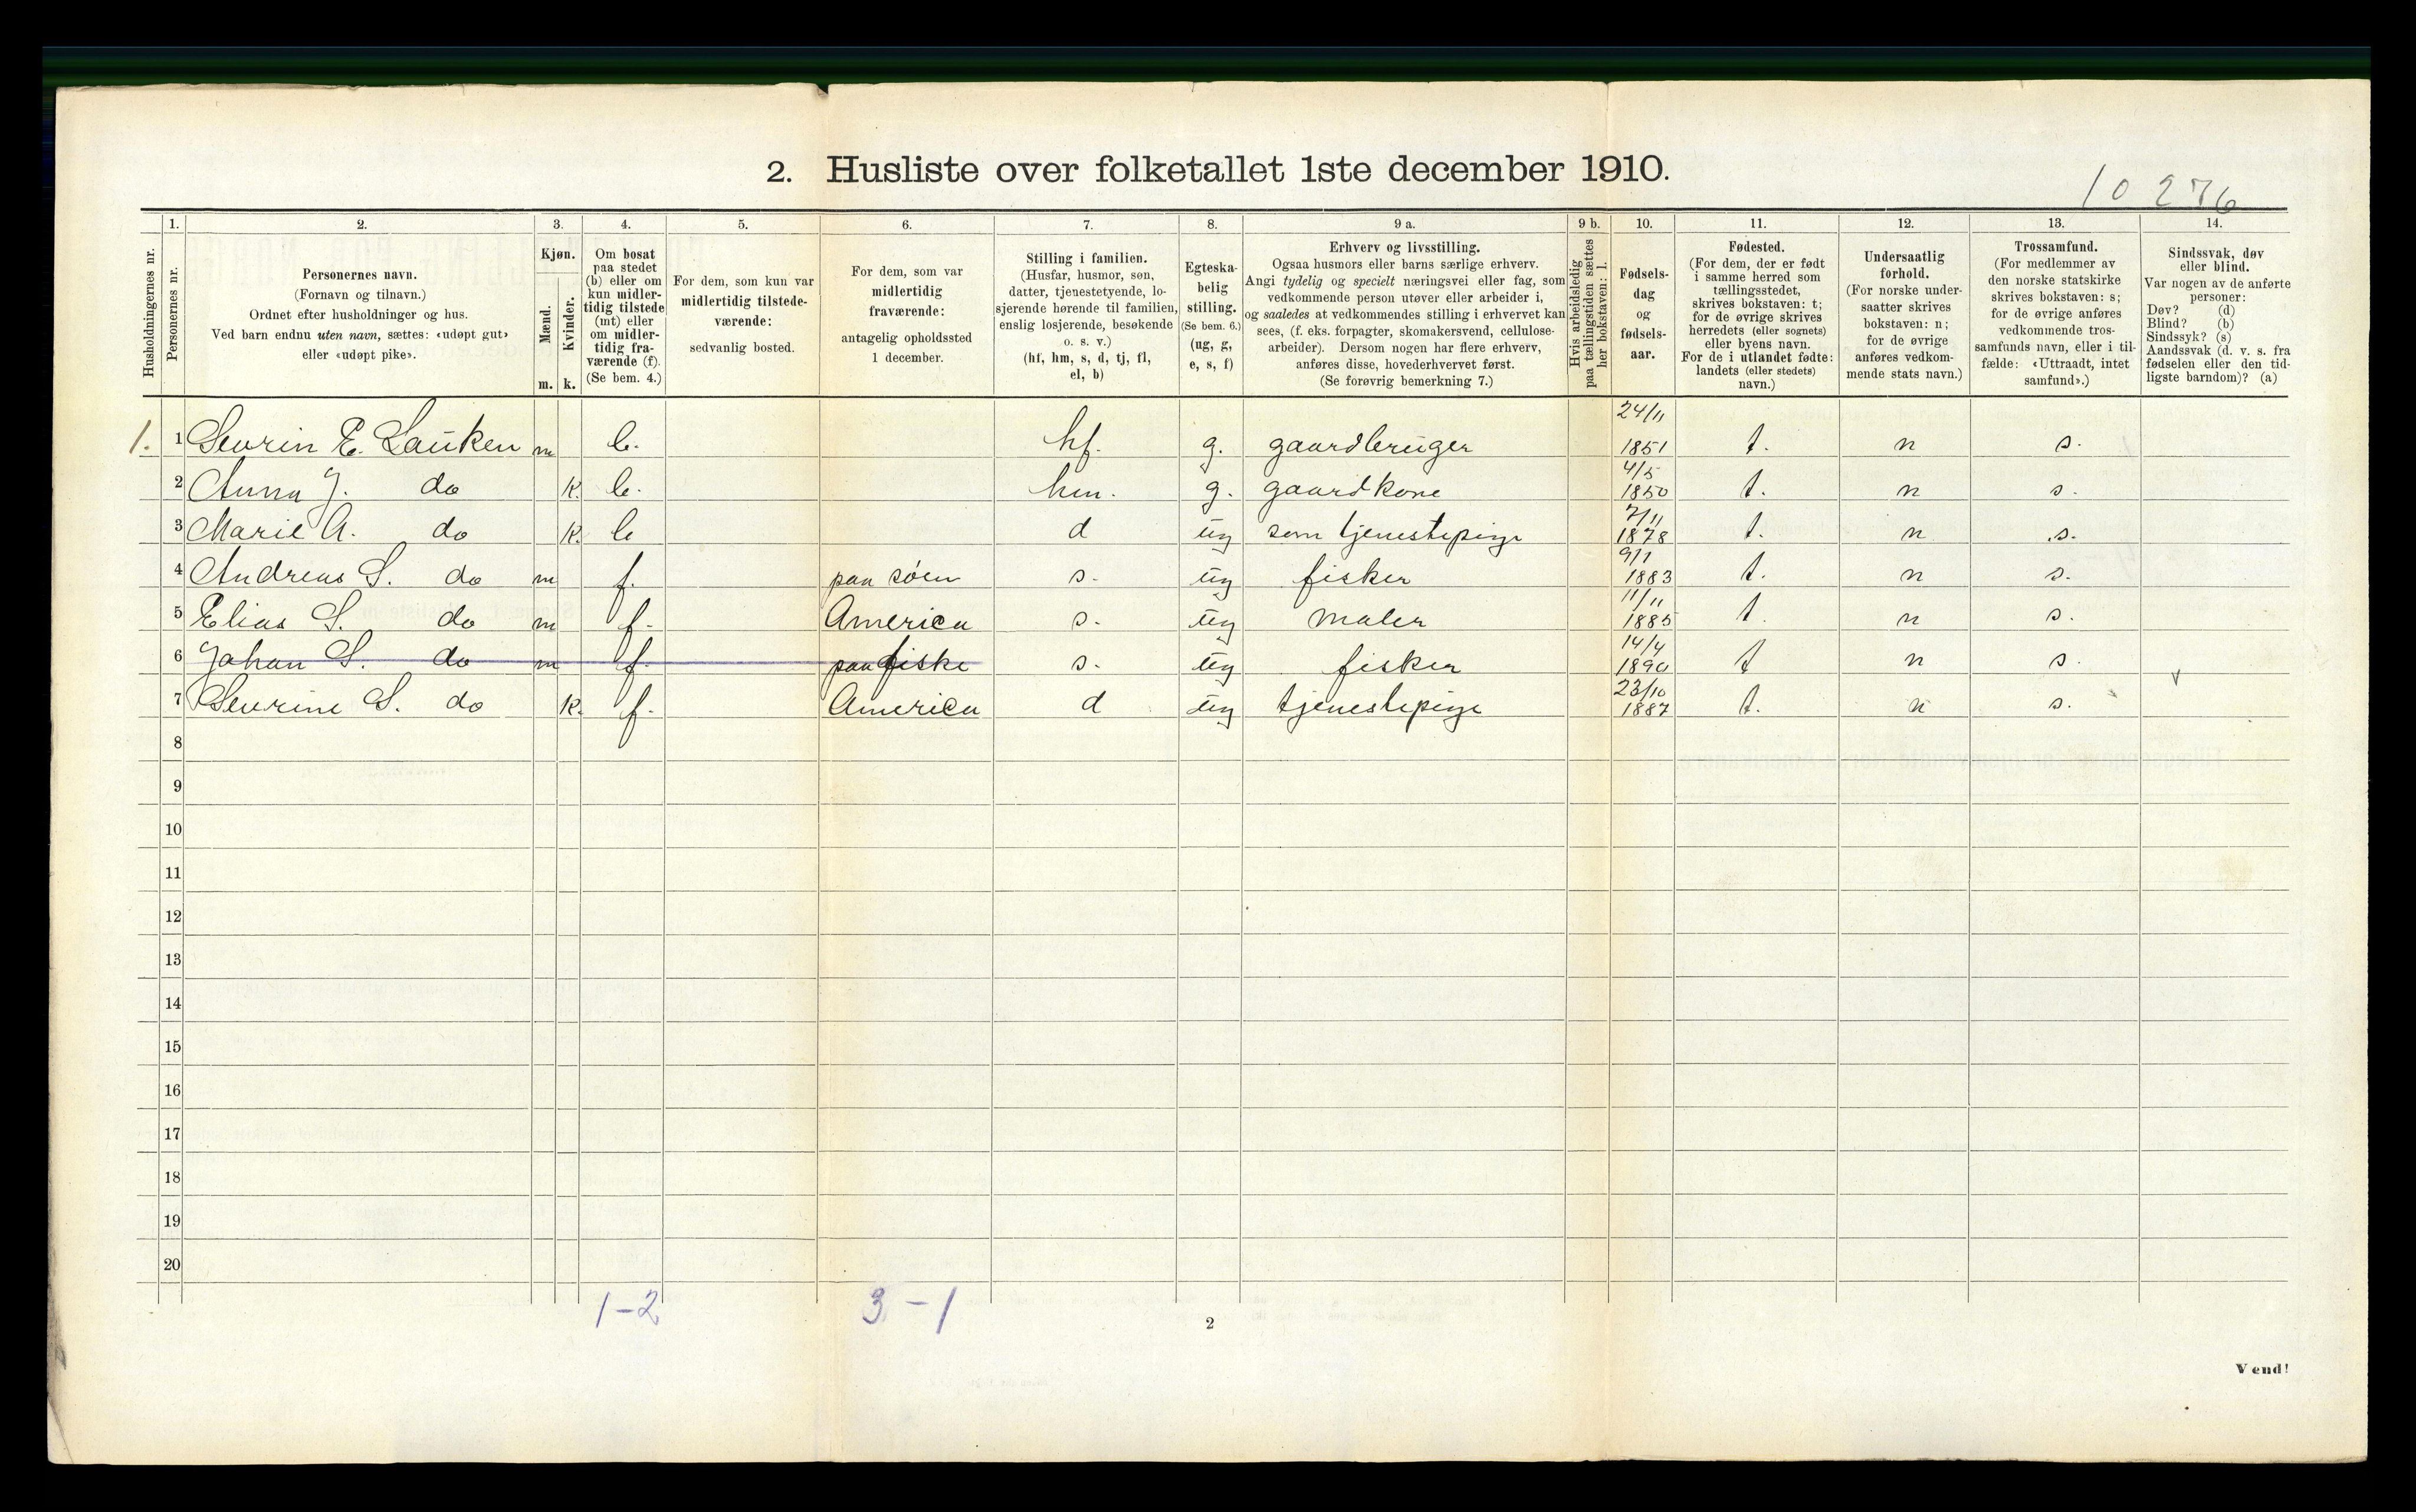 2. Husliste over folketallet 1ste december 1910.
10 276
1. 2. 3. 4. 5. 6. 7. 8. 9 a. 9 b. 10. 11. 12. 13. 14.
Husholdningernes nr.
Personernes nr.
Personernes navn.
(Fornavn og tilnavn.)
Ordnet efter husholdninger og hus.
Ved barn endnu uten navn, sættes: «udøpt gut»
eller «udøpt pike».
Kjøn.
Mænd.
Kvinder.
m. k.
Om bosat
paa stedet
(b) eller om
kun midler-
tidig tilstede
(mt) eller
om midler-
tidig fra-
værende (f).
(Se bem. 4.)
For dem, som kun var
midlertidig tilstede-
værende:
sedvanlig bosted.
For dem, som var
midlertidig
fraværende:
antagelig opholdssted
1 december.
Stilling i familien.
(Husfar, husmor, søn,
datter, tjenestetyende, lo-
sjerende hørende til familien,
enslig losjerende, besøkende
o. s. v.)
(hf, hm, s, d, tj, fl,
el, b)
Egteska-
belig
stilling.
(Se bem. 6.)
(ug, g,
e, s, f)
Erhverv og livsstilling.
Ogsaa husmors eller barns særlige erhverv.
Angi tydelig og specielt næringsvei eller fag, som
vedkommende person utøver eller arbeider i,
og saaledes at vedkommendes stilling i erhvervet kan
sees, (f. eks. forpagter, skomakersvend, cellulose-
arbeider). Dersom nogen har flere erhverv,
anføres disse, hovederhvervet først.
(Se forøvrig bemerkning 7.)
Hvis arbeidsledig
paa tællingstiden sættes
her bokstaven: l.
Fødsels-
dag
og
fødsels-
aar.
Fødested.
(For dem, der er født
i samme herred som
tællingsstedet,
skrives bokstaven: t;
for de øvrige skrives
herredets (eller sognets)
eller byens navn.
For de i utlandet fødte:
landets (eller stedets)
navn.)
Undersaatlig
forhold.
(For norske under-
saatter skrives
bokstaven: n;
for de øvrige
anføres vedkom-
mende stats navn.)
Trossamfund.
(For medlemmer av
den norske statskirke
skrives bokstaven: s;
for de øvrige anføres
vedkommende tros-
samfunds navn, eller i til-
fælde: «Uttraadt, intet
samfund».)
Sindssvak, døv
eller blind.
Var nogen av de anførte
personer:
Døv? (d)
Blind? (b)
Sindssyk? (s)
Aandssvak (d. v. s. fra
fødselen eller den tid-
ligste barndom)? (a)
1. 1 Sevrin E. Lauken m b. hf. g. gaardbruger 24/11 1851 t. n s.
2 Anna J. do k. b. hm. g. gaardkone 4/5 1850 t. n s.
3 Marie A. do k. b d ug som tjenestepige 7/11 1878 t. n s.
4 Andreas S. do m f. paa söen s. ug fisker 9/1 1883 t. n s.
5 Elias S. do m f. America s. ug maler 11/11 1885 t. n s.
6 Johan S. do m f. paa fiske s. ug fisker 14/4 1890 t n s.
7 Sevrine S. do k. f. America d ug tjenestepige 23/10 1887 t. n s. v
8
9
10
11
12
13
14
15
16
17
18
19
20
1-2 3-1
2
Vend!